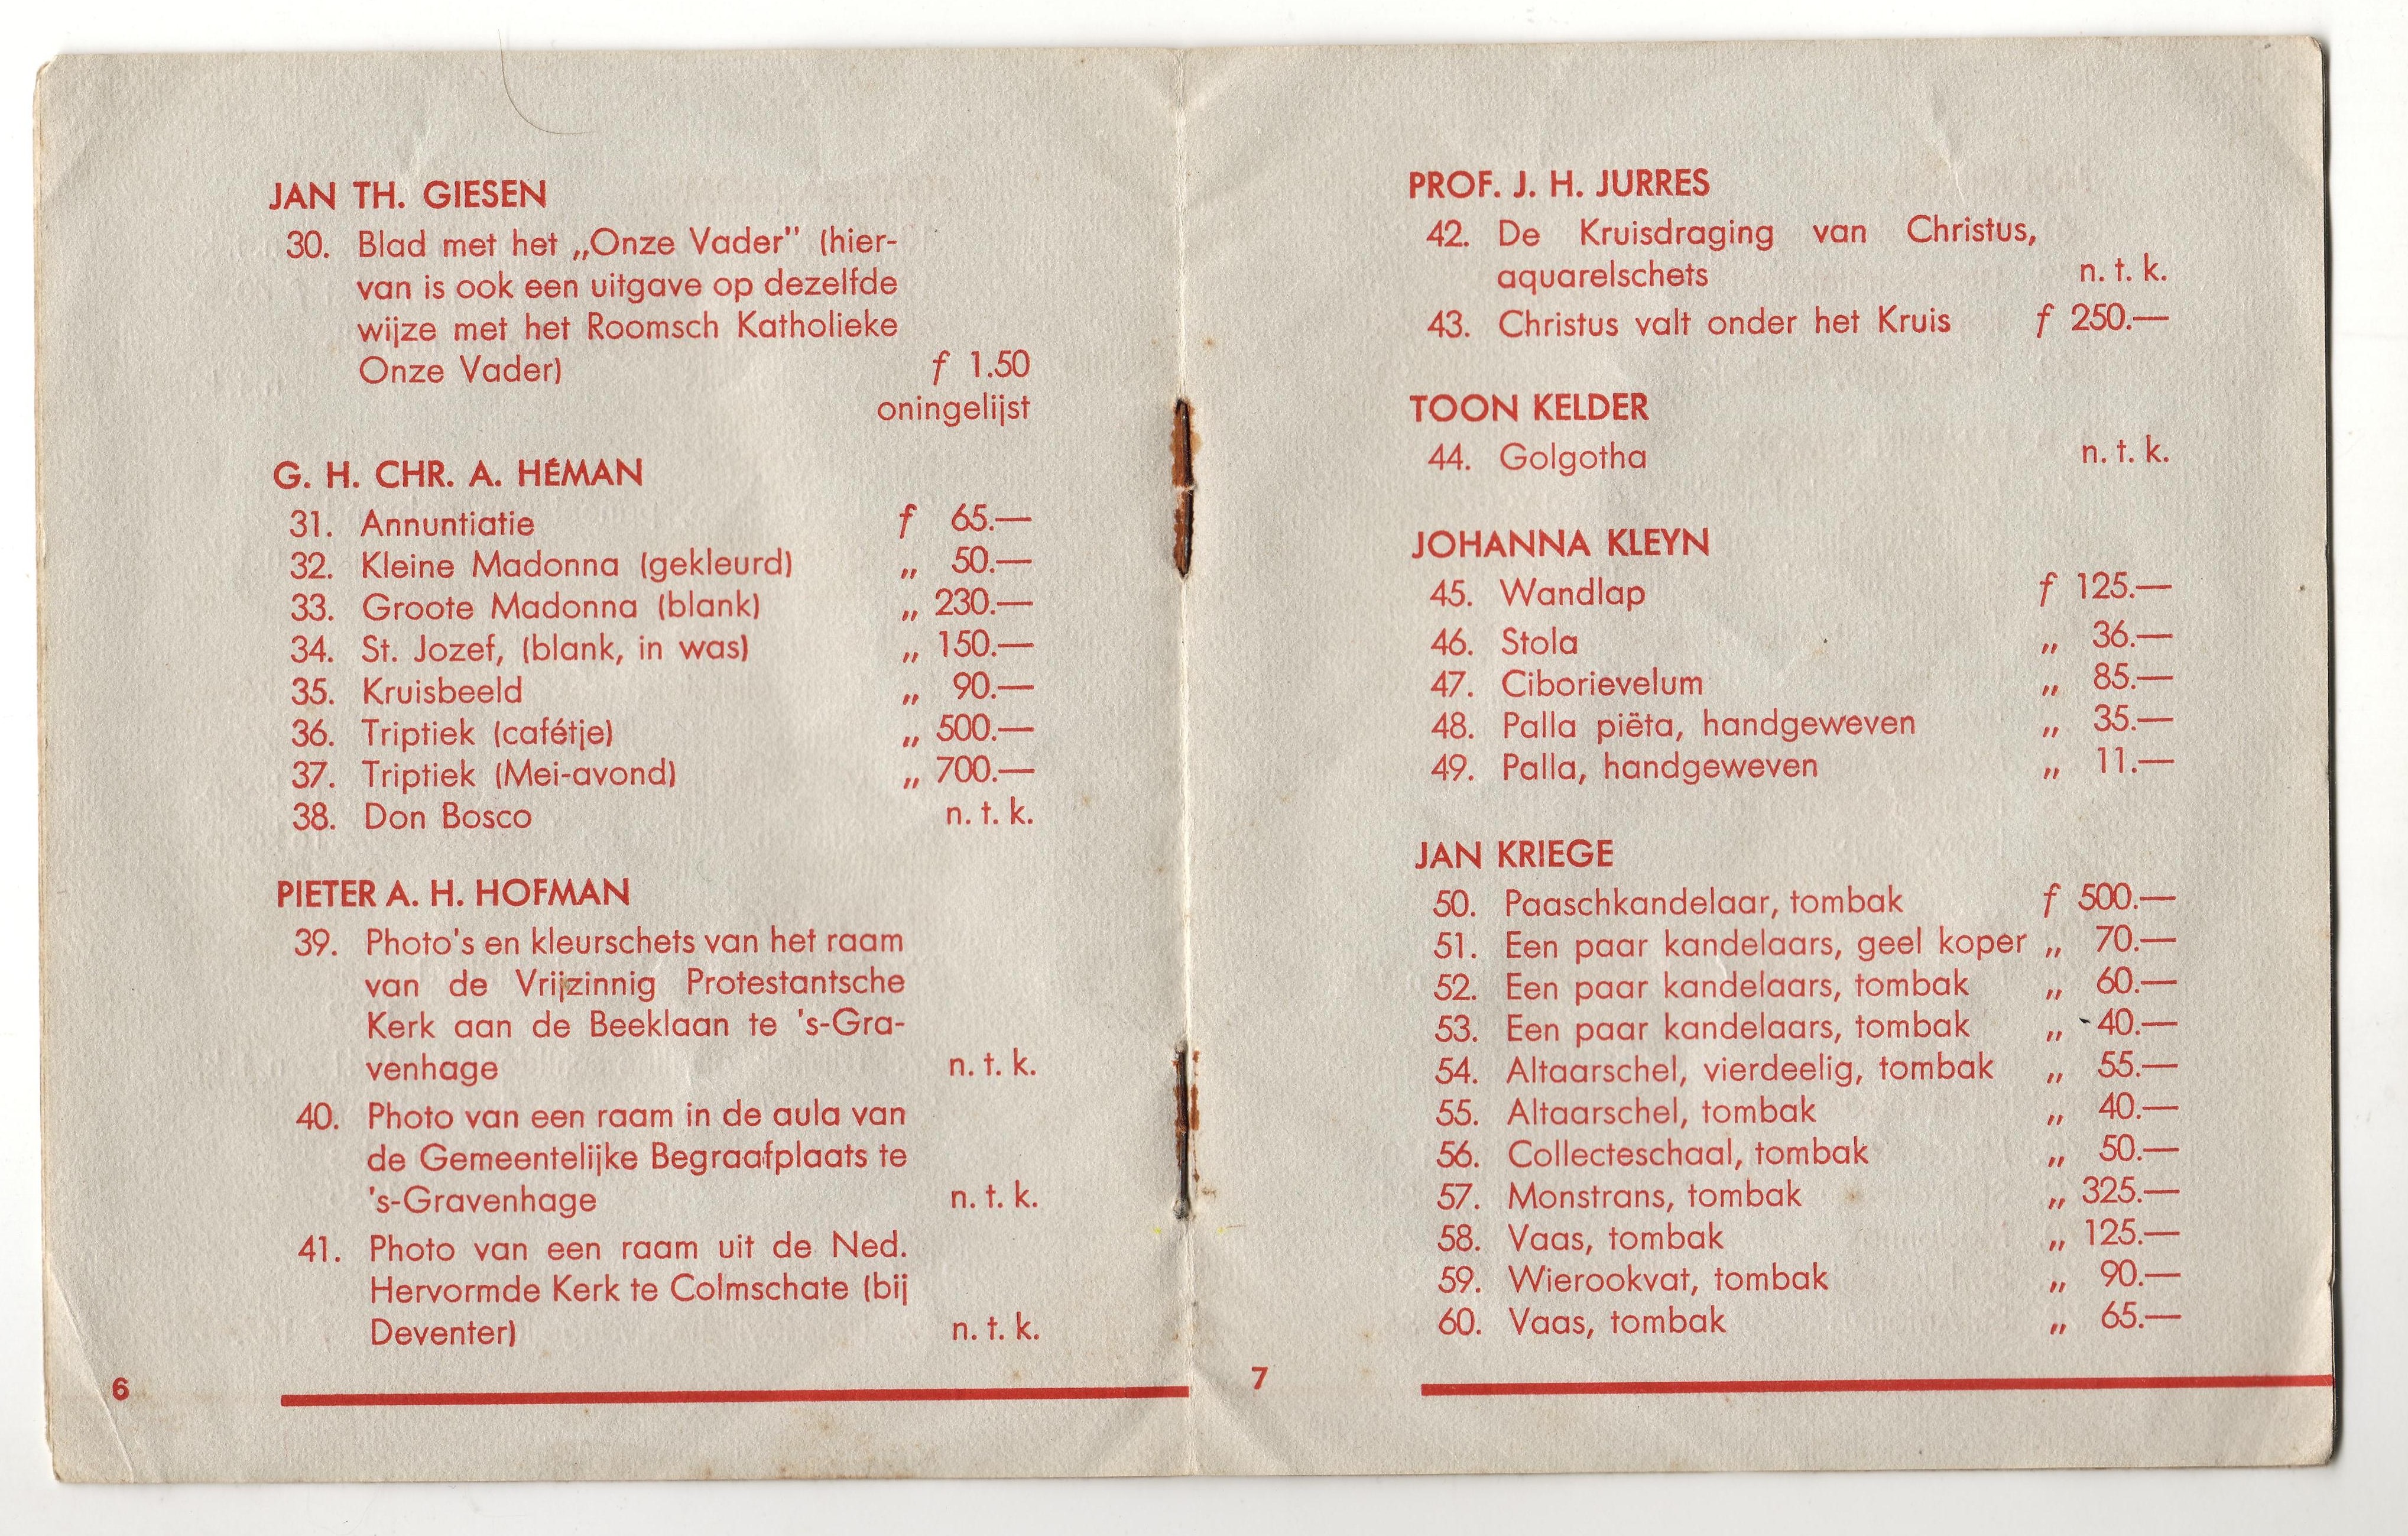 JAN TH. GIESEN
30. Blad met het „Onze Vader" (hier-
van is ook een uitgave op dezelfde
wijze met het Roomsch Katholieke
Onze Vader) f 1.50
oningelijst
G. H. CHR. A. HÉMAN
31. Annuntiatie f 65.—
32. Kleine Madonna (gekleurd) „ 50.—
33. Groote Madonna (blank) „ 230.—
34. St. Jozef, (blank, in was) „ 150.—
35. Kruisbeeld „ 90.—
36. Triptiek (cafétje) „ 500.—
37. Triptiek (Mei-avond) „ 700.—
38. Don Bosco n. t. k.
PIETER A. H. HOFMAN
39. Photo's en kleurschets van het raam
van de Vrijzinnig Protestantsche
Kerk aan de Beeklaan te 's-Gra-
venhage n. t. k.
40. Photo van een raam in de aula van
de Gemeentelijke Begraafplaats te
's-Gravenhage n. t. k.
41. Photo van een raam uit de Ned.
Hervormde Kerk te Colmschate (bij
Deventer) n. t. k.
6
PROF. J. H. JURRES
42. De Kruisdraging van Christus,
aquarelschets n. t. k.
43. Christus valt onder het Kruis f 250.—
TOON KELDER
44. Golgotha n. t. k.
JOHANNA KLEYN
45. Wandlap f 125.—
46. Stola „ 36.—
47. Ciborievelum „ 85.—
48. Palla piëta, handgeweven „ 35.—
49. Palla, handgeweven „ 11.—
JAN KRIEGE
50. Paaschkandelaar, tombak f 500.—
51. Een paar kandelaars, geel koper „ 70.—
52. Een paar kandelaars, tombak „ 60.—
53. Een paar kandelaars, tombak „ 40.—
54. Altaarschel, vierdeelig, tombak „ 55.—
55. Altaarschel, tombak „ 40.—
56. Collecteschaal, tombak „ 50.—
57. Monstrans, tombak „ 325.—
58. Vaas, tombak „ 125.—
59. Wierookvat, tombak „ 90.—
60. Vaas, tombak „ 65.—
7